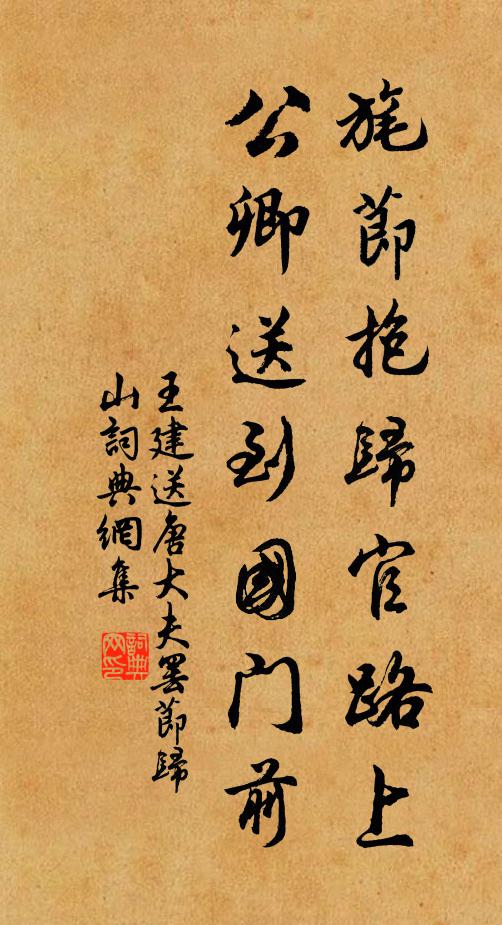 旄節抱歸官路上
公卿送到國門前
王建送唐大夫罷節歸
山詞典網集
詞典
网印